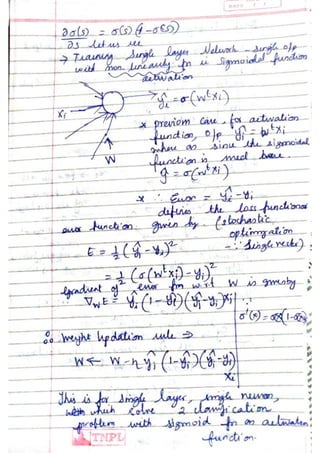 ∂σ(s) = σ(s) (1-σ(s))
∂s let us see
→ Training Single layer Network - single o/p
with non linearity fn is Sigmoidal function
activation
xi
W
ŷi = σ(Wᵗxi)
* previous case, for activation
function, o/p ŷi = Wᵗxi
where as since the sigmoidal
function is used here
ŷ = σ(Wᵗxi)
* ∴ Error = ŷi - yi
defines the loss functional
error function given by (stochastic
optimization
- ∵ Single vector)
E = ½ (ŷi - yi)²
= ½ (σ(Wᵗxi) - yi)²
gradient of error fn w.r.t W is given by
∇wE = ŷi (1-ŷi)(ŷi-yi)xi
σ'(x) = σ(x)(1-σ(x))
∴ Weight updation rule ⇒
W ← W - η ŷi (1-ŷi)(ŷi-yi)
xi
This is for single layer, single neuron,
which solve 2 classification
problem with sigmoid fn as activation
function.
TNPL